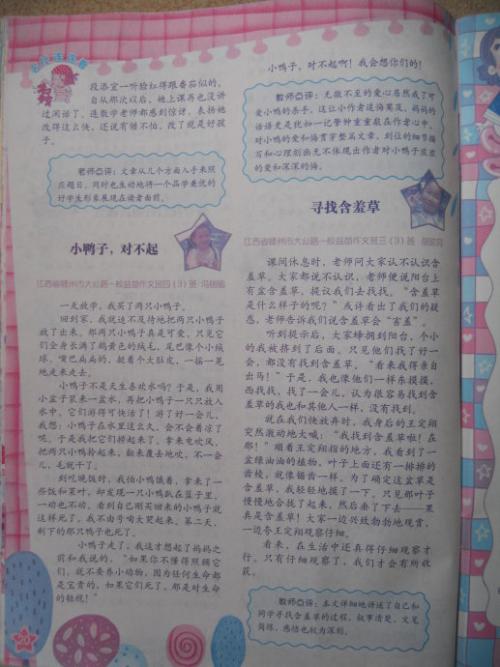 段添宜一听脸红得跟番茄似的。
自从那次以后，她上课再也没讲
过闲话了。连数学老师都感到惊讶，表扬她
改得这么快。还说有错不怕，改了就是好孩
子。
老师点评：文章从几个方面入手来照
应题目，同时也生动地将一个品学兼优的
好学生形象展现在读者面前。
小鸭子，对不起
江西省赣州市大公路一校益苗作文班四（3）班
一天放学，我买了两只小鸭子。
回到家，我就迫不及待地把两只小鸭子
放了出来。那两只小鸭子真是可爱，只见它
们全身长满了鹅黄色的绒毛，尾巴像个小绒
球，嘴巴扁扁的，挺着个大肚皮，一摇一晃
地走来走去。
小鸭子不是天生喜欢水吗？于是，我用
小盆子装来一盆水，再把小鸭子一只只放入
水中。它们游得可快活了！游了好一会儿，
我想：小鸭子在水里这么久，会不会着凉了
呢。于是我把它们捞起来了，拿来电吹风，
把两只小鸭拎起来，翻来覆去地吹，不一会
儿，毛就干了。
到吃晚饭时，我怕小鸭饿着，拿来了一
些饭和菜叶，却发现一只小鸭趴在篮子里，
一动也不动，看到自己刚买回来的小鸭子就
这样死了，我不由号啕大哭起来。第二天，
剩下的那只鸭子也死了。
小鸭子走了，我这才想起了妈妈之
前和我说的，“如果你不懂得照顾它
们，就不要养小动物，因为任何生命都
是宝贵的，如果它们死了，那是对生命
的轻视！”
小鸭子，对不起啊！我会想你们的！
教师点评：无微不至的爱心居然成了可
爱小鸭的杀手，这让小作者追悔莫及，妈妈的
话语更是犹如一记警钟重重敲在作者心中。
对小鸭的爱和悔贯穿整篇文章，到位的细节描
写和心理刻画无不体现出作者对小鸭子浓浓
的爱和深深的悔。
寻找含羞草
江西省赣州市大公路一校益苗作文班三（3）班
课间休息时，老师问大家认不认识含
羞草。大家都说不认识，老师便说阳台上
有盆含羞草，提议我们去找找。“含羞草
是什么样子的呢？”或许看出了我们的疑
惑，老师告诉我们说含羞草会“害羞”。
听到提示后，大家蜂拥到阳台，个小
的我被挤到了后面。只见他们找了好一
会，都没有找到含羞草。“看来我得亲自
出马！”于是，我也像他们一样东摸摸，
西找找，找了一会儿，认为很容易找到含
羞草的我也和其他人一样，没有找到。
就在我们快放弃时，我身后的王定翔
突然激动地大喊：“我找到含羞草啦！在
那！”顺着王定翔指的方向，我看到了一
盆绿油油的植物，叶子上面还有一排排的
齿棱，就像锯齿一样。为了确定这盆草是
含羞草，我轻轻地摸了一下，只见那叶子
慢慢地合拢了起来，然后垂了下去——果
真是含羞草！大家一边兴致勃勃地观赏，
一边夸王定翔观察仔细。
看来，在生活中还真得仔细观察才
行。只有仔细观察了，我们才会有所收
获。
教师点评：本文详细地讲述了自己和
同学寻找含羞草的过程，叙事清楚，文笔
简练，感悟也较为深刻。